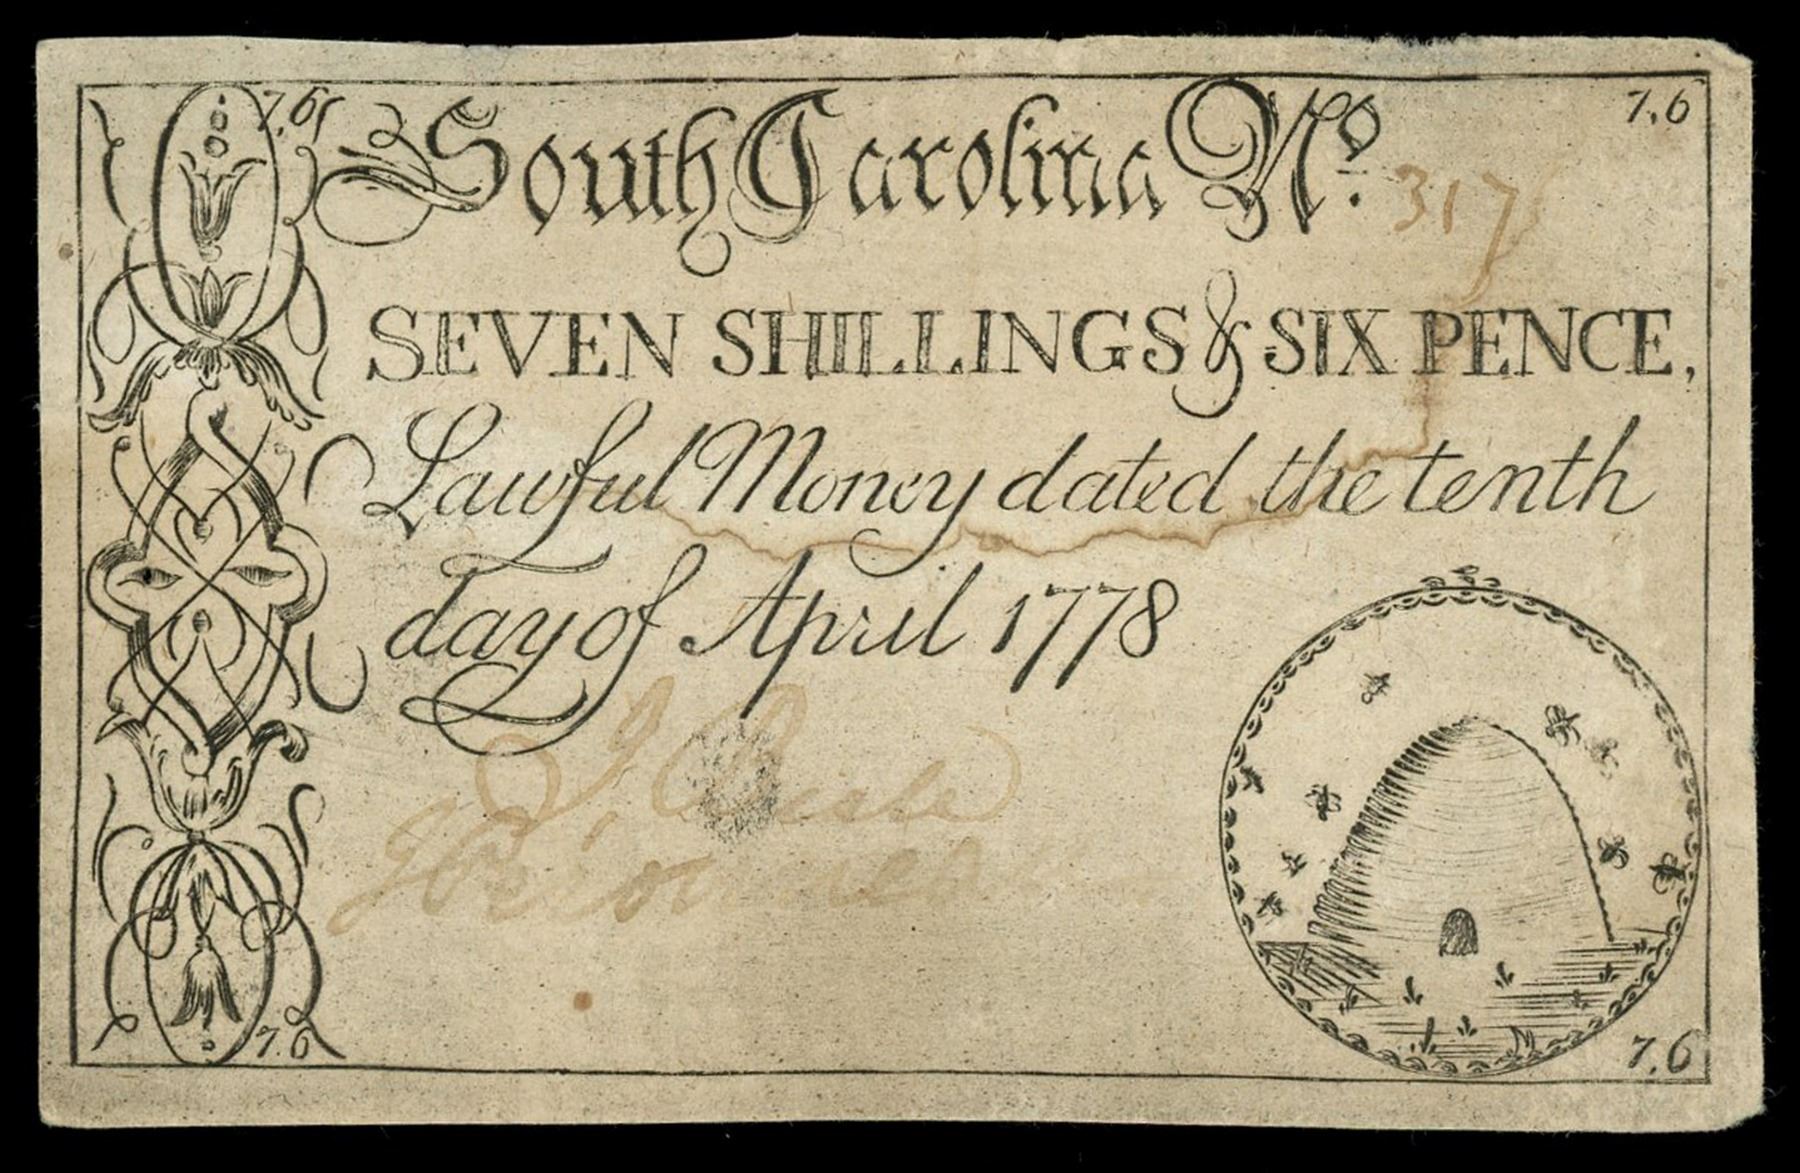 7.6 South Carolina No. 317 7.6
SEVEN SHILLINGS & SIX PENCE,
Lawful Money dated the tenth
day of April 1778
7.6 7.6